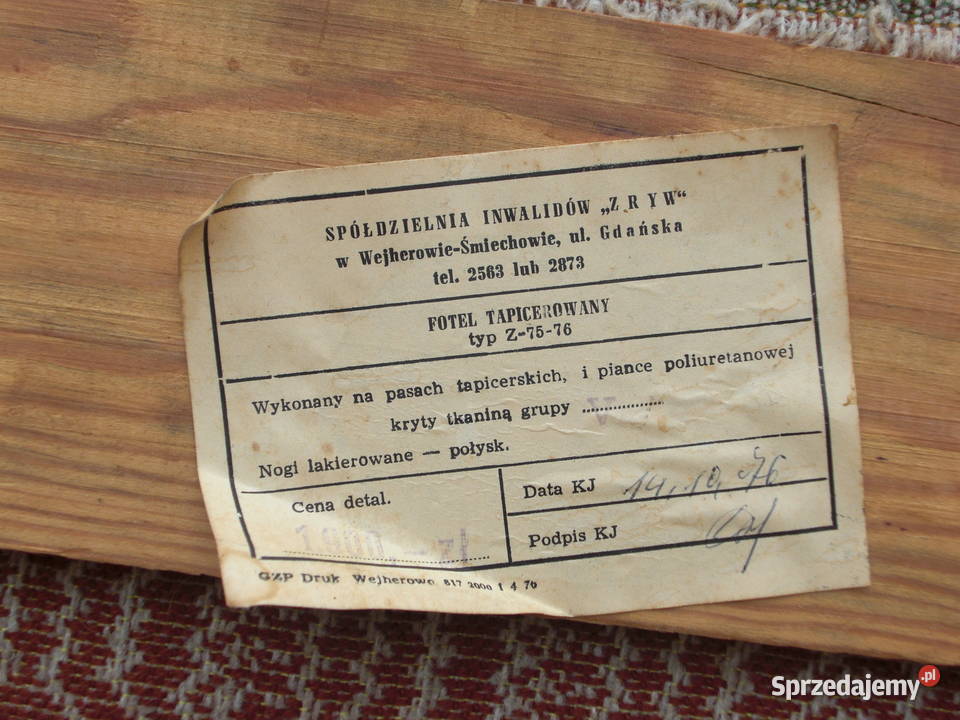 SPÓŁDZIELNIA INWALIDÓW „ZRYW"
w Wejherowie-Śmiechowie, ul. Gdańska
tel. 2563 lub 2873
FOTEL TAPICEROWANY
typ Z-75-76
Wykonany na pasach tapicerskich, i piance poliuretanowej
kryty tkaniną grupy .................. V
Nogi lakierowane — połysk.
Cena detal.
Data KJ 14.10.76
Podpis KJ
GZP Druk Wejherowo 817 2000 1 4 76
Sprzedajemy.pl